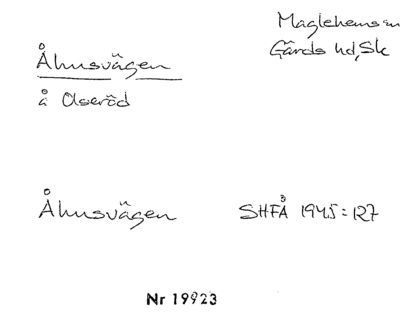 Maglehems sn
Gärds hd, Sk
Åhusvägen
å Olseröd
Åhusvägen SHFÅ 1945:127
Nr 19923